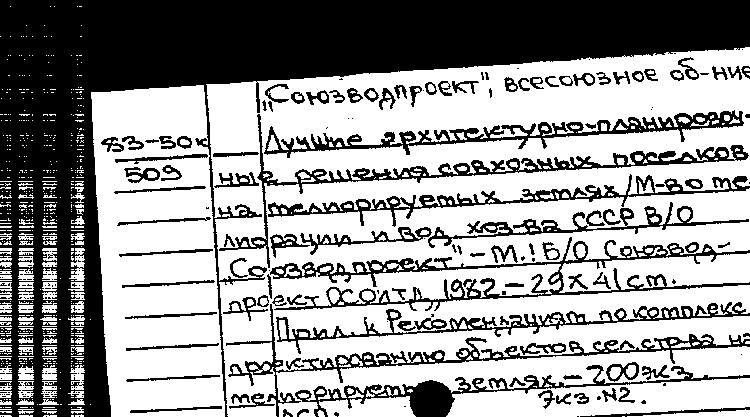 "Союзводпроект", всесоюзное об-ние
83-50к
509
Лучшие архитектурно-планировоч-
ные решения совхозных поселков
на мелиорируемых землях/М-во ме-
лиорации и вод. хоз-ва СССР, В/О
"Союзводпроект".-М.: Б/О "Союзвод-
проект 1982.-29х41 см.
Прил. к Рекомендациям по комплекс
проектированию объектов сел.стр-ва на
мелиорируем землях.-200экз.
Экз. №2.